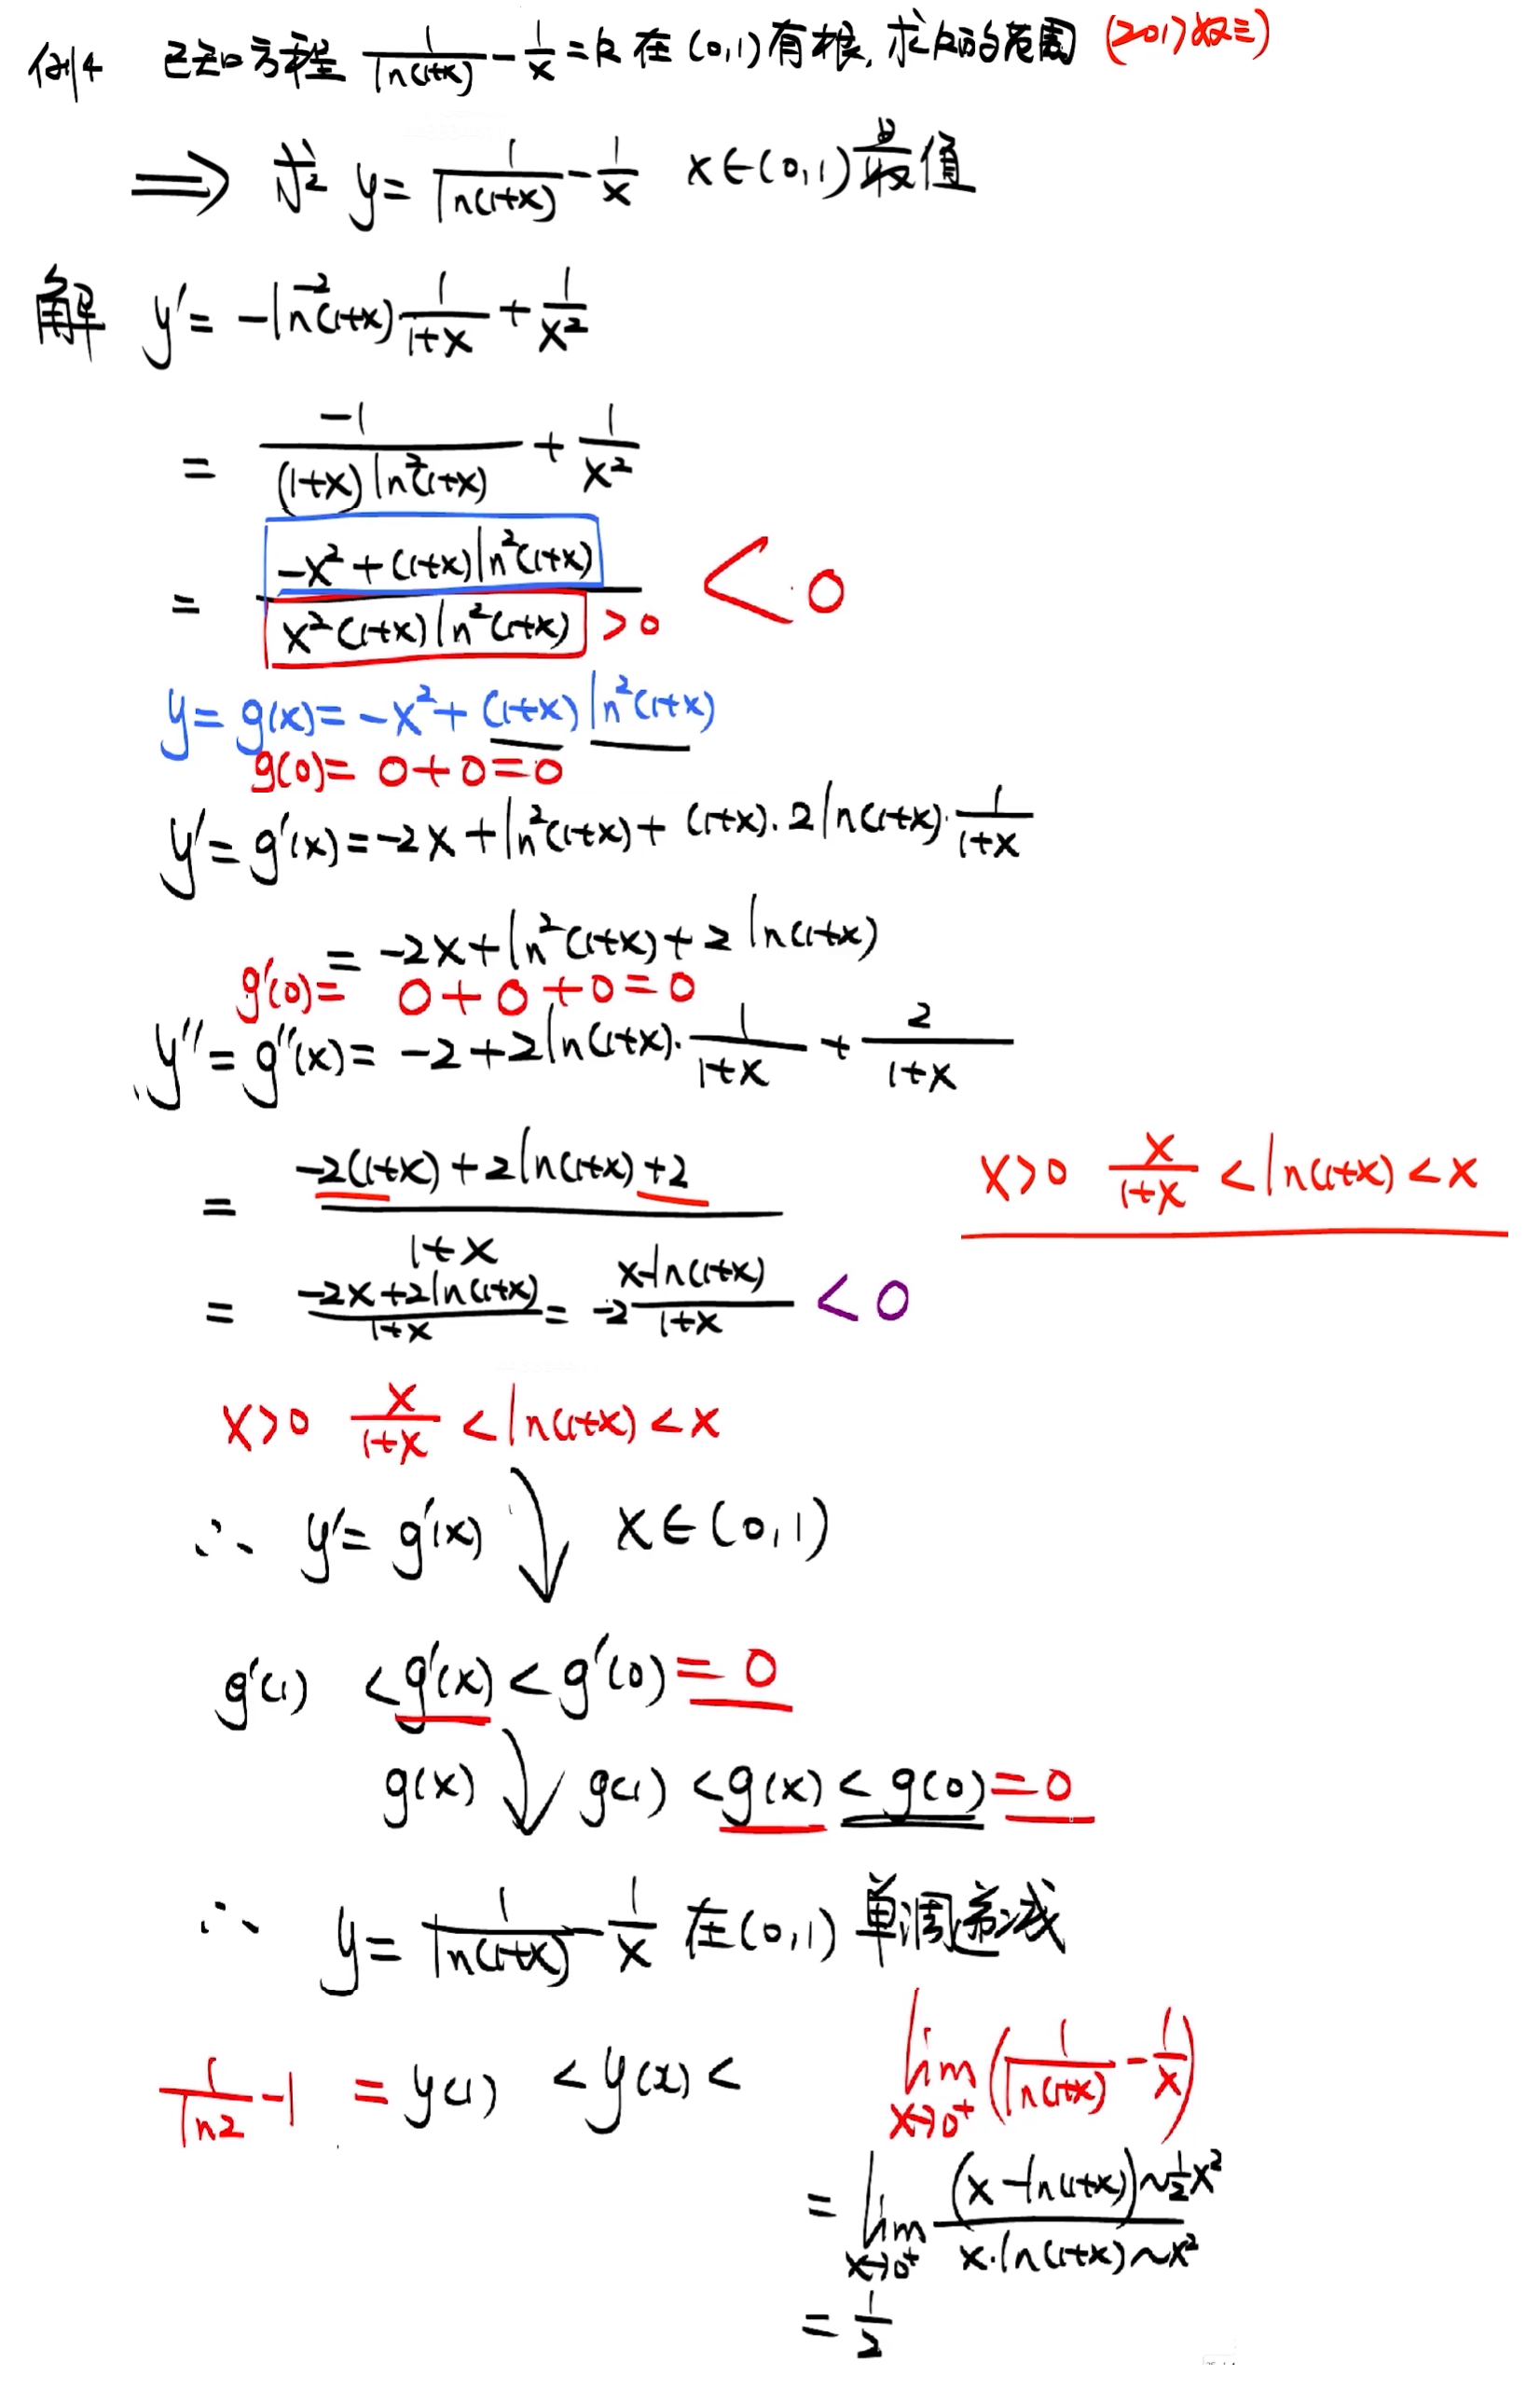 例4 已知方程 1/ln(1+x) - 1/x = k 在(0,1)有根, 求k的范围 (2017数三)
⟹ 求 y = 1/ln(1+x) - 1/x x∈(0,1) 最值
解 y' = -ln⁻²(1+x) 1/(1+x) + 1/x²
= -1/((1+x)ln²(1+x)) + 1/x²
= (-x²+(1+x)ln²(1+x))/(x²(1+x)ln²(1+x)) >0 < 0
y = g(x) = -x² + (1+x)ln²(1+x)
g(0) = 0+0=0
y' = g'(x) = -2x + ln²(1+x) + (1+x)·2ln(1+x)·1/(1+x)
= -2x + ln²(1+x) + 2ln(1+x)
g'(0) = 0+0+0=0
y'' = g''(x) = -2 + 2ln(1+x)·1/(1+x) + 2/(1+x)
= (-2(1+x)+2ln(1+x)+2)/(1+x)
x>0 x/(1+x) < ln(1+x) < x
= (-2x+2ln(1+x))/(1+x) = -2 (x-ln(1+x))/(1+x) < 0
x>0 x/(1+x) < ln(1+x) < x
∴ y' = g'(x) ↘ x∈(0,1)
g'(1) < g'(x) < g'(0) = 0
g(x) ↘ g(1) < g(x) < g(0) = 0
∴ y = 1/ln(1+x) - 1/x 在(0,1)单调递减
1/ln2 - 1 = y(1) < y(x) < lim x→0⁺ (1/ln(1+x) - 1/x)
= lim x→0⁺ (x-ln(1+x))~½x² / x·ln(1+x)~x²
= 1/2